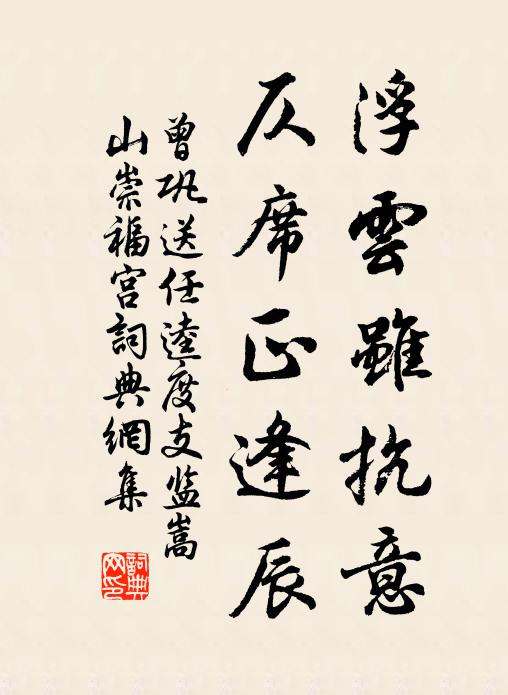 浮雲雖抗意
仄席正逢辰
曾巩送任逵度支监嵩
山崇福宫詞典網集
詞典
网印